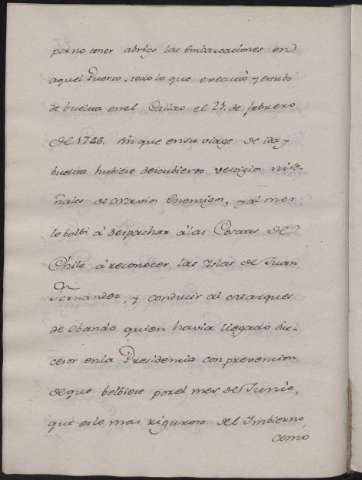 por no tener abrigo las embarcaciones en
aquel Puerto, todo lo que executò y estubo
de buelta en el Callao el 25. de febrero
de 1748. sin que en su viage de ida y
buelta hubiese descubierto vestigio ni se-
ñales de Navios Enemigos, y al mes
lo bolbi à despachar à las Costas de
Chile à reconocer las Yslas de Juan
Fernandez, y conducir al Marques
de Obando quien havia llegado suc-
cesor en la Presidencia con prevencion
de que bolbiese por el mes de Junio,
que es lo mas riguroso del Imbierno,
como